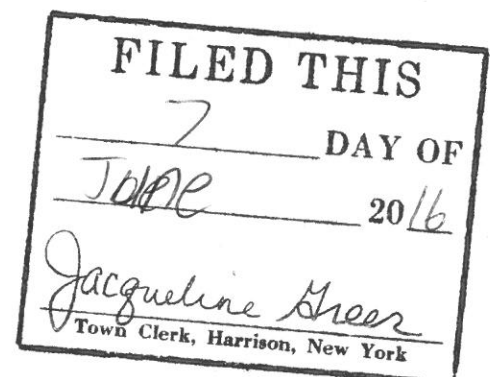 FILED THIS
7 DAY OF
June 2016
Jacqueline Greer
Town Clerk, Harrison, New York